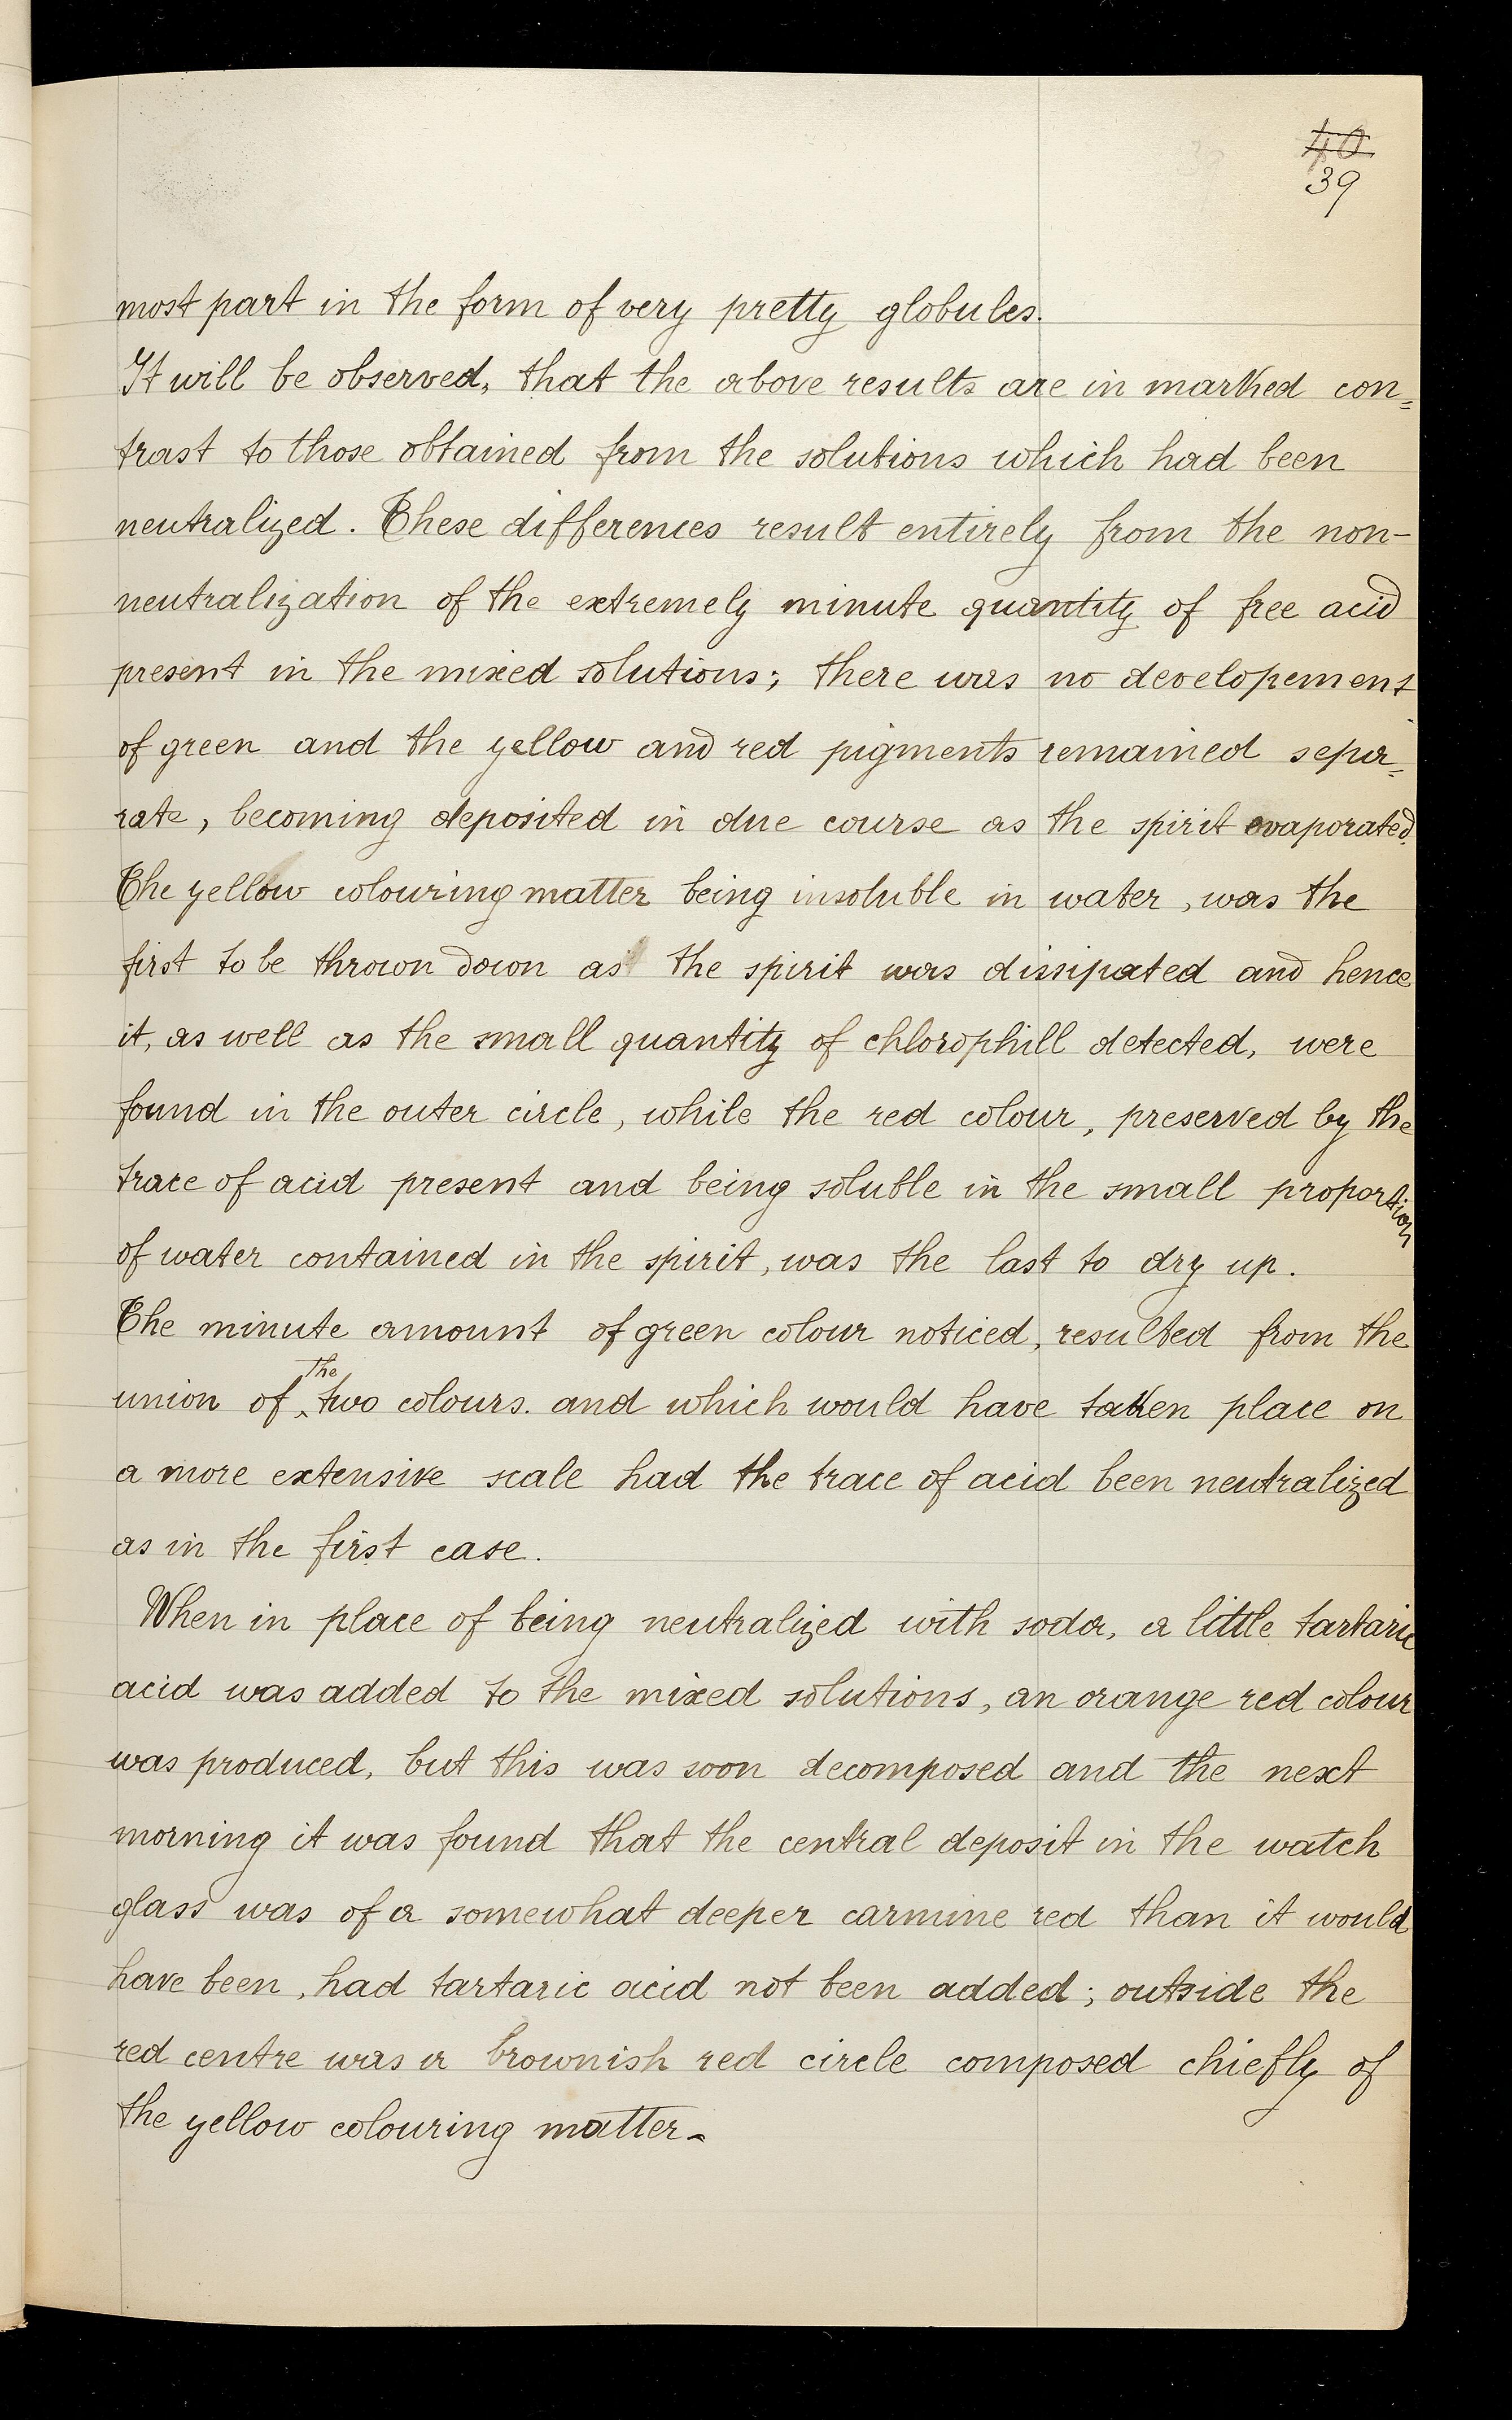 40
39
most part in the form of very pretty globules.
It will be observed, that the above results are in marked con=
trast to those obtained from the solutions which had been
neutralized. These differences result entirely from the non-
neutralization of the extremely minute quantity of free acid
present in the mixed solutions; there was no developement
of green and the yellow and red pigments remained sepa=
rate, becoming deposited in due course as the spirit evaporated.
The yellow colouring matter being insoluble in water, was the
first to be thrown down as the spirit was dissipated and hence
it, as well as the small quantity of chlorophill detected, were
found in the outer circle, while the red colour, preserved by the
trace of acid present and being soluble in the small proportion
of water contained in the spirit, was the last to dry up.
The minute amount of green colour noticed, resulted from the
union of the two colours. and which would have taken place on
a more extensive scale had the trace of acid been neutralized
as in the first case.
When in place of being neutralized with soda, a little tartaric
acid was added to the mixed solutions, an orange red colour
was produced, but this was soon decomposed and the next
morning it was found that the central deposit in the watch
glass was of a somewhat deeper carmine red than it would
have been, had tartaric acid not been added; outside the
red centre was a brownish red circle composed chiefly of
the yellow colouring matter.